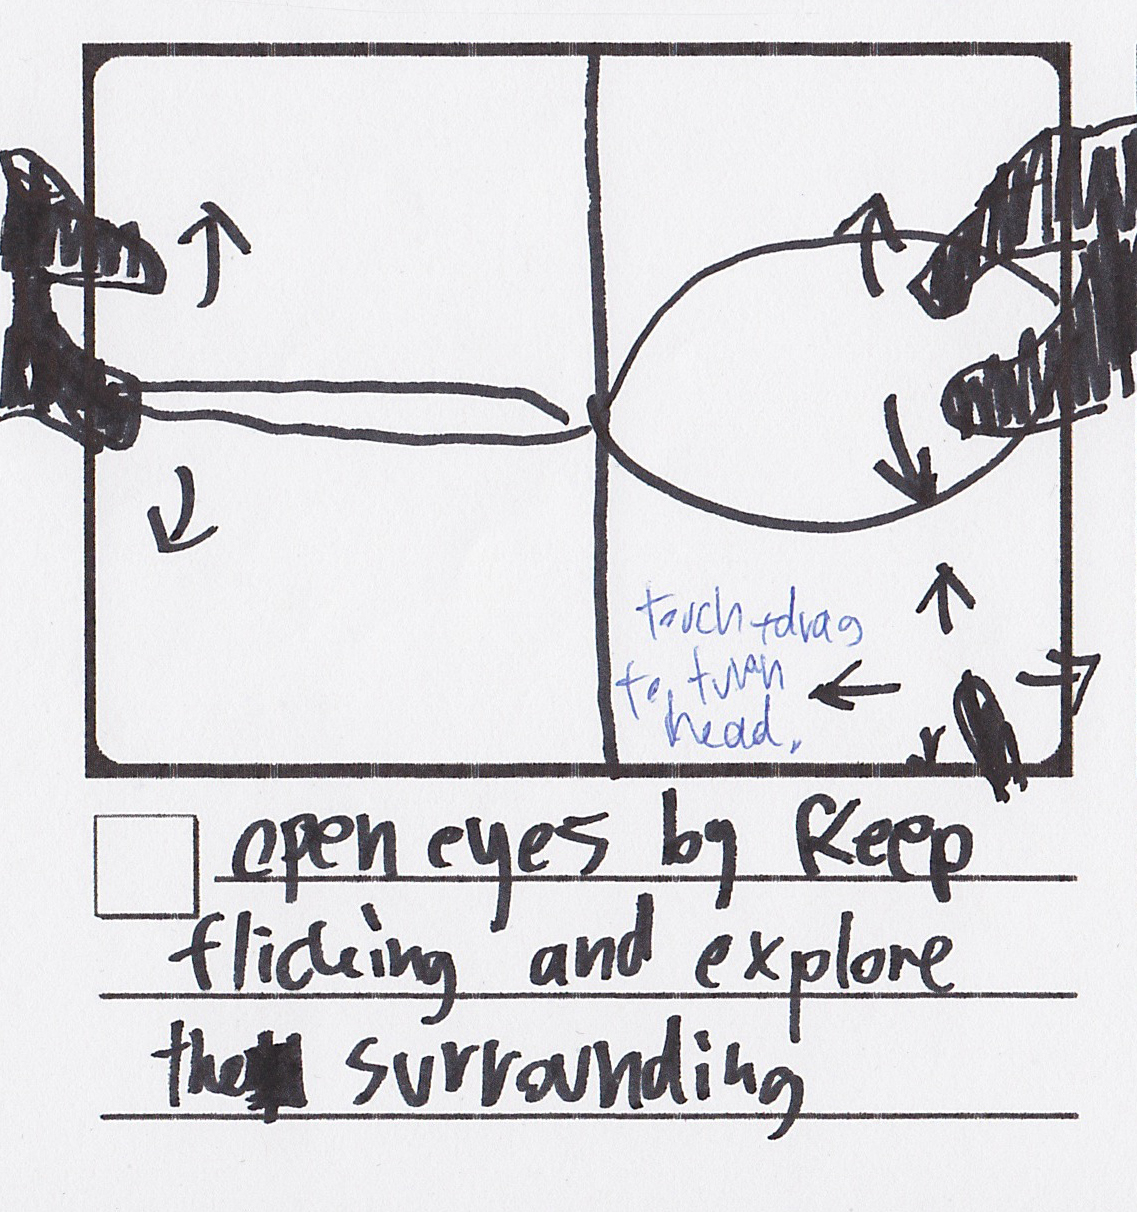 touch + drag
to turn
head.
open eyes by keep
flicking and explore
the surrounding